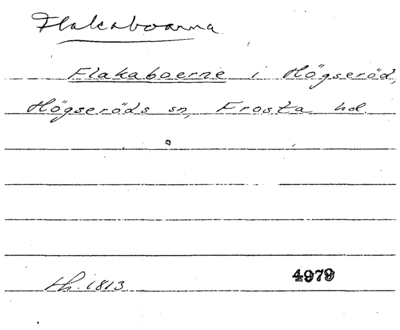 Flakaboarna
Flakaboerne i Högseröd,
Högseröds sn, Frosta hd.
th. 1813 4979